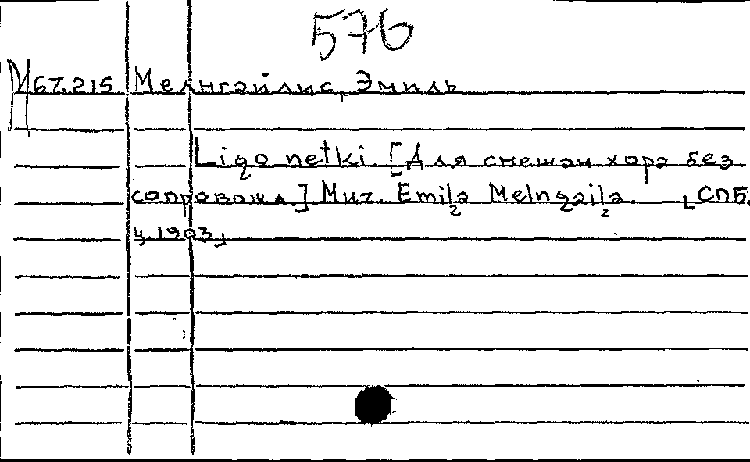 576
М67.215 Мелнгайлис, Эмиль
Ligo netki. [Для смешан хора без
сопровожд.] Muz. Emiļa Melngaiļa. [СПБ.
ц. 1903]